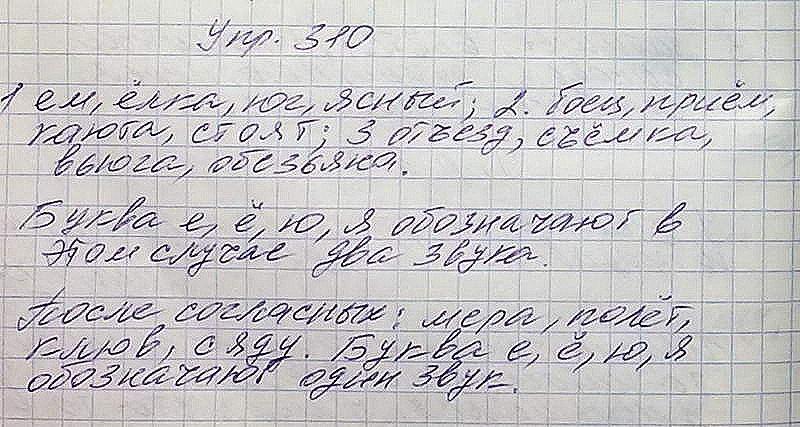 Упр. 310
1 ем, ёлка, юг, ясный; 2. боец, приём,
каюта, стоят; 3 отъезд, съёмка,
вьюга, обезьяна.
Буква е, ё, ю, я обозначают в
этом случае два звука.
После согласных: мера, полёт,
клюв, сяду. Буква е, ё, ю, я
обозначают один звук.